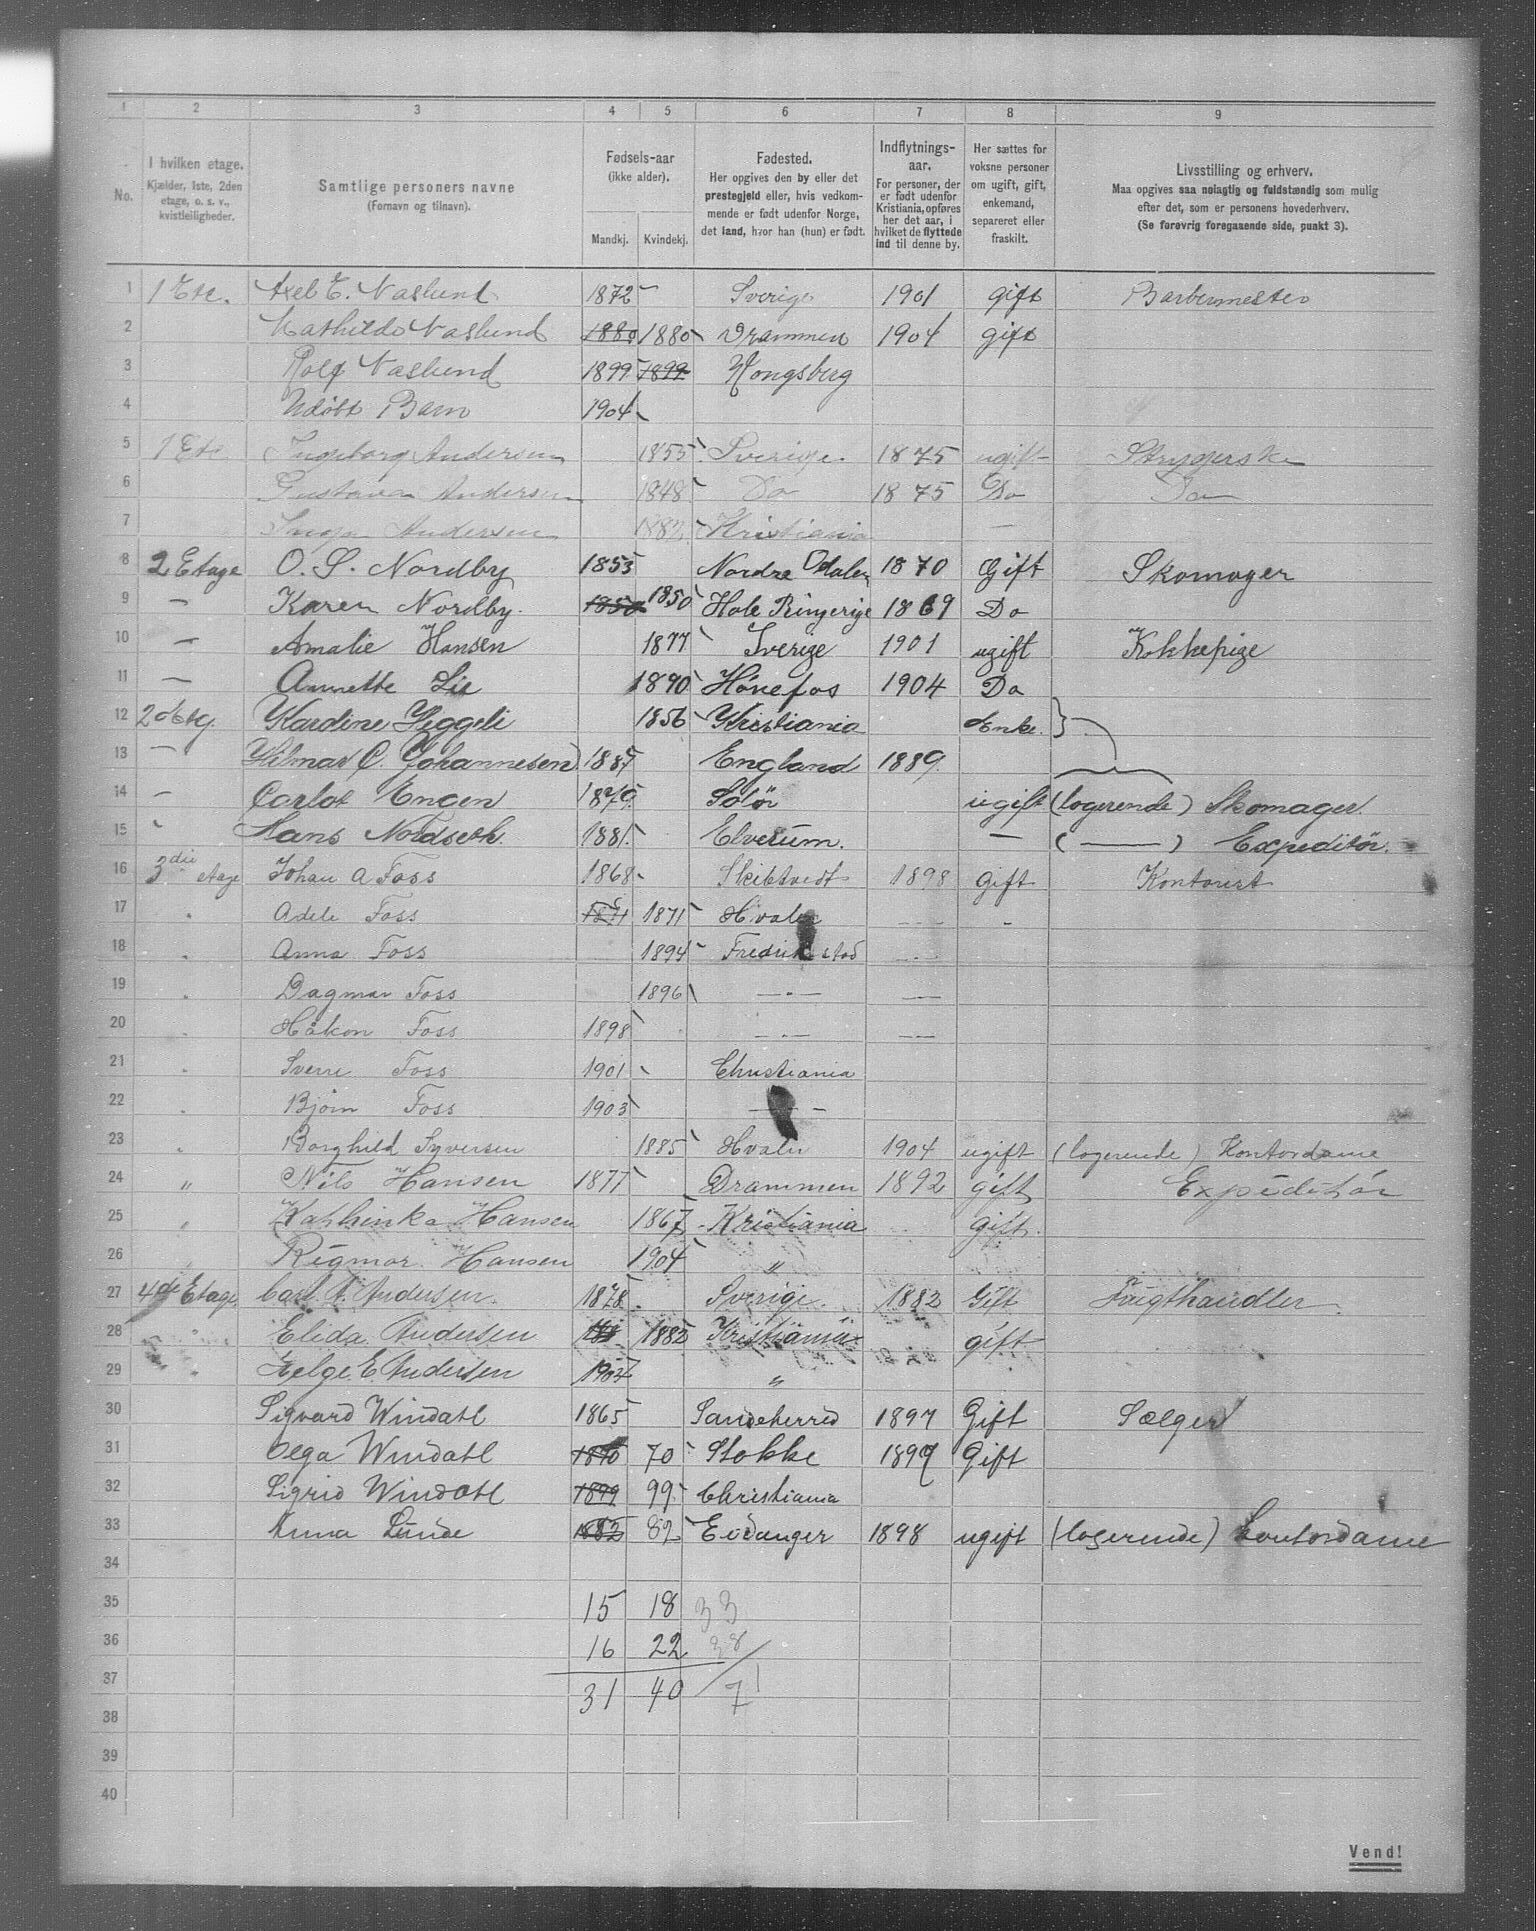 1 2 3 4 5 6 7 8 9
No.
I hvilken etage.
Kjælder, 1ste, 2den
etage, o. s. v.,
kvistleiligheder.
Samtlige personers navne
(Fornavn og tilnavn).
Fødsels-aar
(ikke alder).
Mandkj. Kvindekj.
Fødested.
Her opgives den by eller det
prestegjeld eller, hvis vedkom-
mende er født udenfor Norge,
det land, hvor han (hun) er født.
Indflytnings-
aar.
For personer, der
er født udenfor
Kristiania, opføres
her det aar, i
hvilket de flyttede
ind til denne by.
Her sættes for
voksne personer
om ugift, gift,
enkemand,
separeret eller
fraskilt.
Livsstilling og erhverv.
Maa opgives saa nøiagtig og fuldstændig som mulig
efter det, som er personens hovederhverv.
(Se forøvrig foregaaende side, punkt 3).
1 1 Etg. Axel E. Naslund 1872 Sverige 1901 gift Barbermester
2 Mathilde Naslund 1880 1880 Drammen 1904 gift
3 Rolf Naslund 1899 1899 Kongsberg
4 Udøbt Barn 1904
5 1 Etg Ingeborg Andersen 1855 Sverige 1875 ugift Strygerske
6 Gustava Andersen 1848 Do 1875 Do Do
7 Inga Andersen 1882 Kristiania —
8 2 Etage O. S. Nordby 1853 Nordre Odalen 1870 Gift Skomager
9 — Karen Nordby. 1850 1850 Hole Ringerige 1869 Do
10 — Amalie Hansen 1877 Sverige 1901 ugift Kokkepige
11 — Annette Lie 1890 Hønefos 1904 Do
12 2d Etg. Kardine Heggeli 1856 Kristiania Enke.
13 — Hilmar C. Johannesen 1887 England 1889.
14 — Carlot Engen 1879 Solør ugift (logerende) Skomager.
15 Hans Nordseth. 1881. Elverum. — ( — ) Expeditør.
16 3die etage Johan A Foss 1868 Skibtvedt 1898 gift Kontorist
17 " Adele Foss 1871 1871 Hvaler — -
18 " Anna Foss 1894 Fredrikstad —
19 " Dagmar Foss 1896 — " — —
20 " Håkon Foss 1898 — —
21 " Sverre Foss 1901 Christiania
22 " Bjørn Foss 1903 —
23 " Borghild Syversen 1885 Hvaler 1904 ugift (logerende) Kontordame
24 " Nils Hansen 1877 Drammen 1892 gift Expeditør
25 " Kathinka Hansen 1867 Kristiania gift.
26 " Rigmor Hansen 1904 "
27 4de Etage Carl A. Andersen. 1878. Sverige. 1882 Gift Frugthandler
28 " Elida Andersen 1882 Kristiania gift
29 " Helge E. Andersen 1904 "
30 Sigvard Windahl 1865 Sandeherred 1897 Gift Sælger
31 Olga Windahl 1870 70 Stokke 1897 Gift
32 Sigrid Windahl 1899 99 Christiania
33 Anna Lunde 1882 82 Eidanger 1898 ugift (logerende) Kontordame
34
35 15 18 33
36 16 22 38
37 31 40 71
38
39
40
Vend!